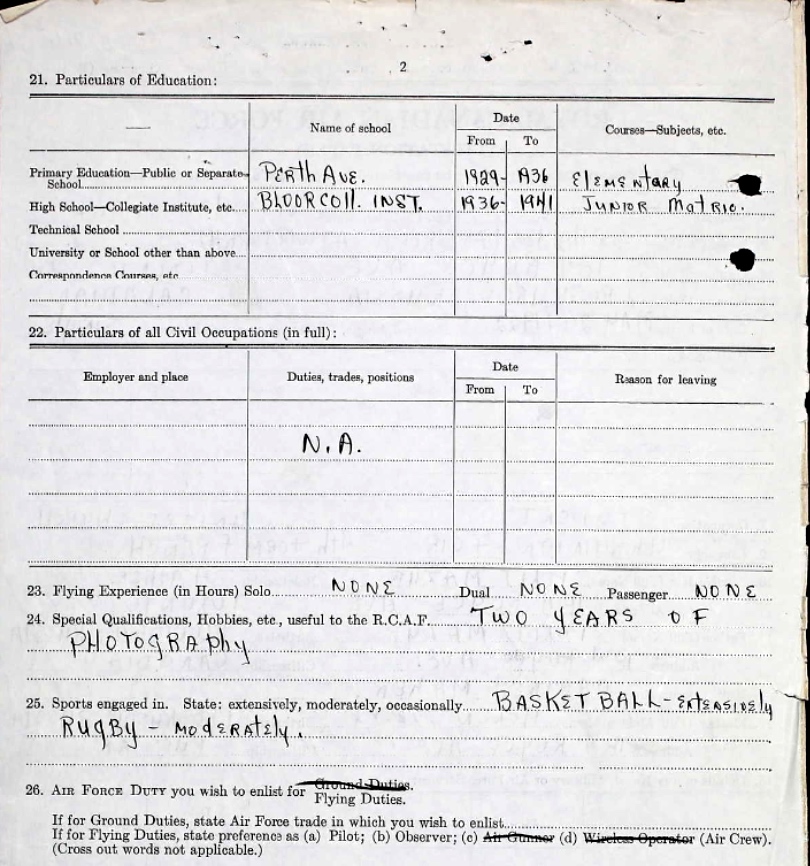 2
21. Particulars of Education:
Name of school
Date
Courses—Subjects, etc.
From To
Primary Education—Public or Separate School PERTH AVE. 1929- 1936 ElEMENtARY
High School—Collegiate Institute, etc. BLOOR COll. INST. 1936- 1941 JUNIOR MatRIC.
Technical School
University or School other than above
Correspondence Courses, etc
22. Particulars of all Civil Occupations (in full):
Employer and place
Duties, trades, positions
Date
Reason for leaving
From To
N.A.
23. Flying Experience (in Hours) Solo NONE Dual NONE Passenger NONE
24. Special Qualifications, Hobbies, etc., useful to the R.C.A.F. TWO YEARS OF
PHOTOGRAPhy
25. Sports engaged in. State: extensively, moderately, occasionally BASKETBALL - EXTENSIVELY
RUGBY - MODERATELY.
26. AIR FORCE DUTY you wish to enlist for Ground Duties.
Flying Duties.
If for Ground Duties, state Air Force trade in which you wish to enlist
If for Flying Duties, state preference as (a) Pilot; (b) Observer; (c) Air Gunner (d) Wireless Operator (Air Crew).
(Cross out words not applicable.)